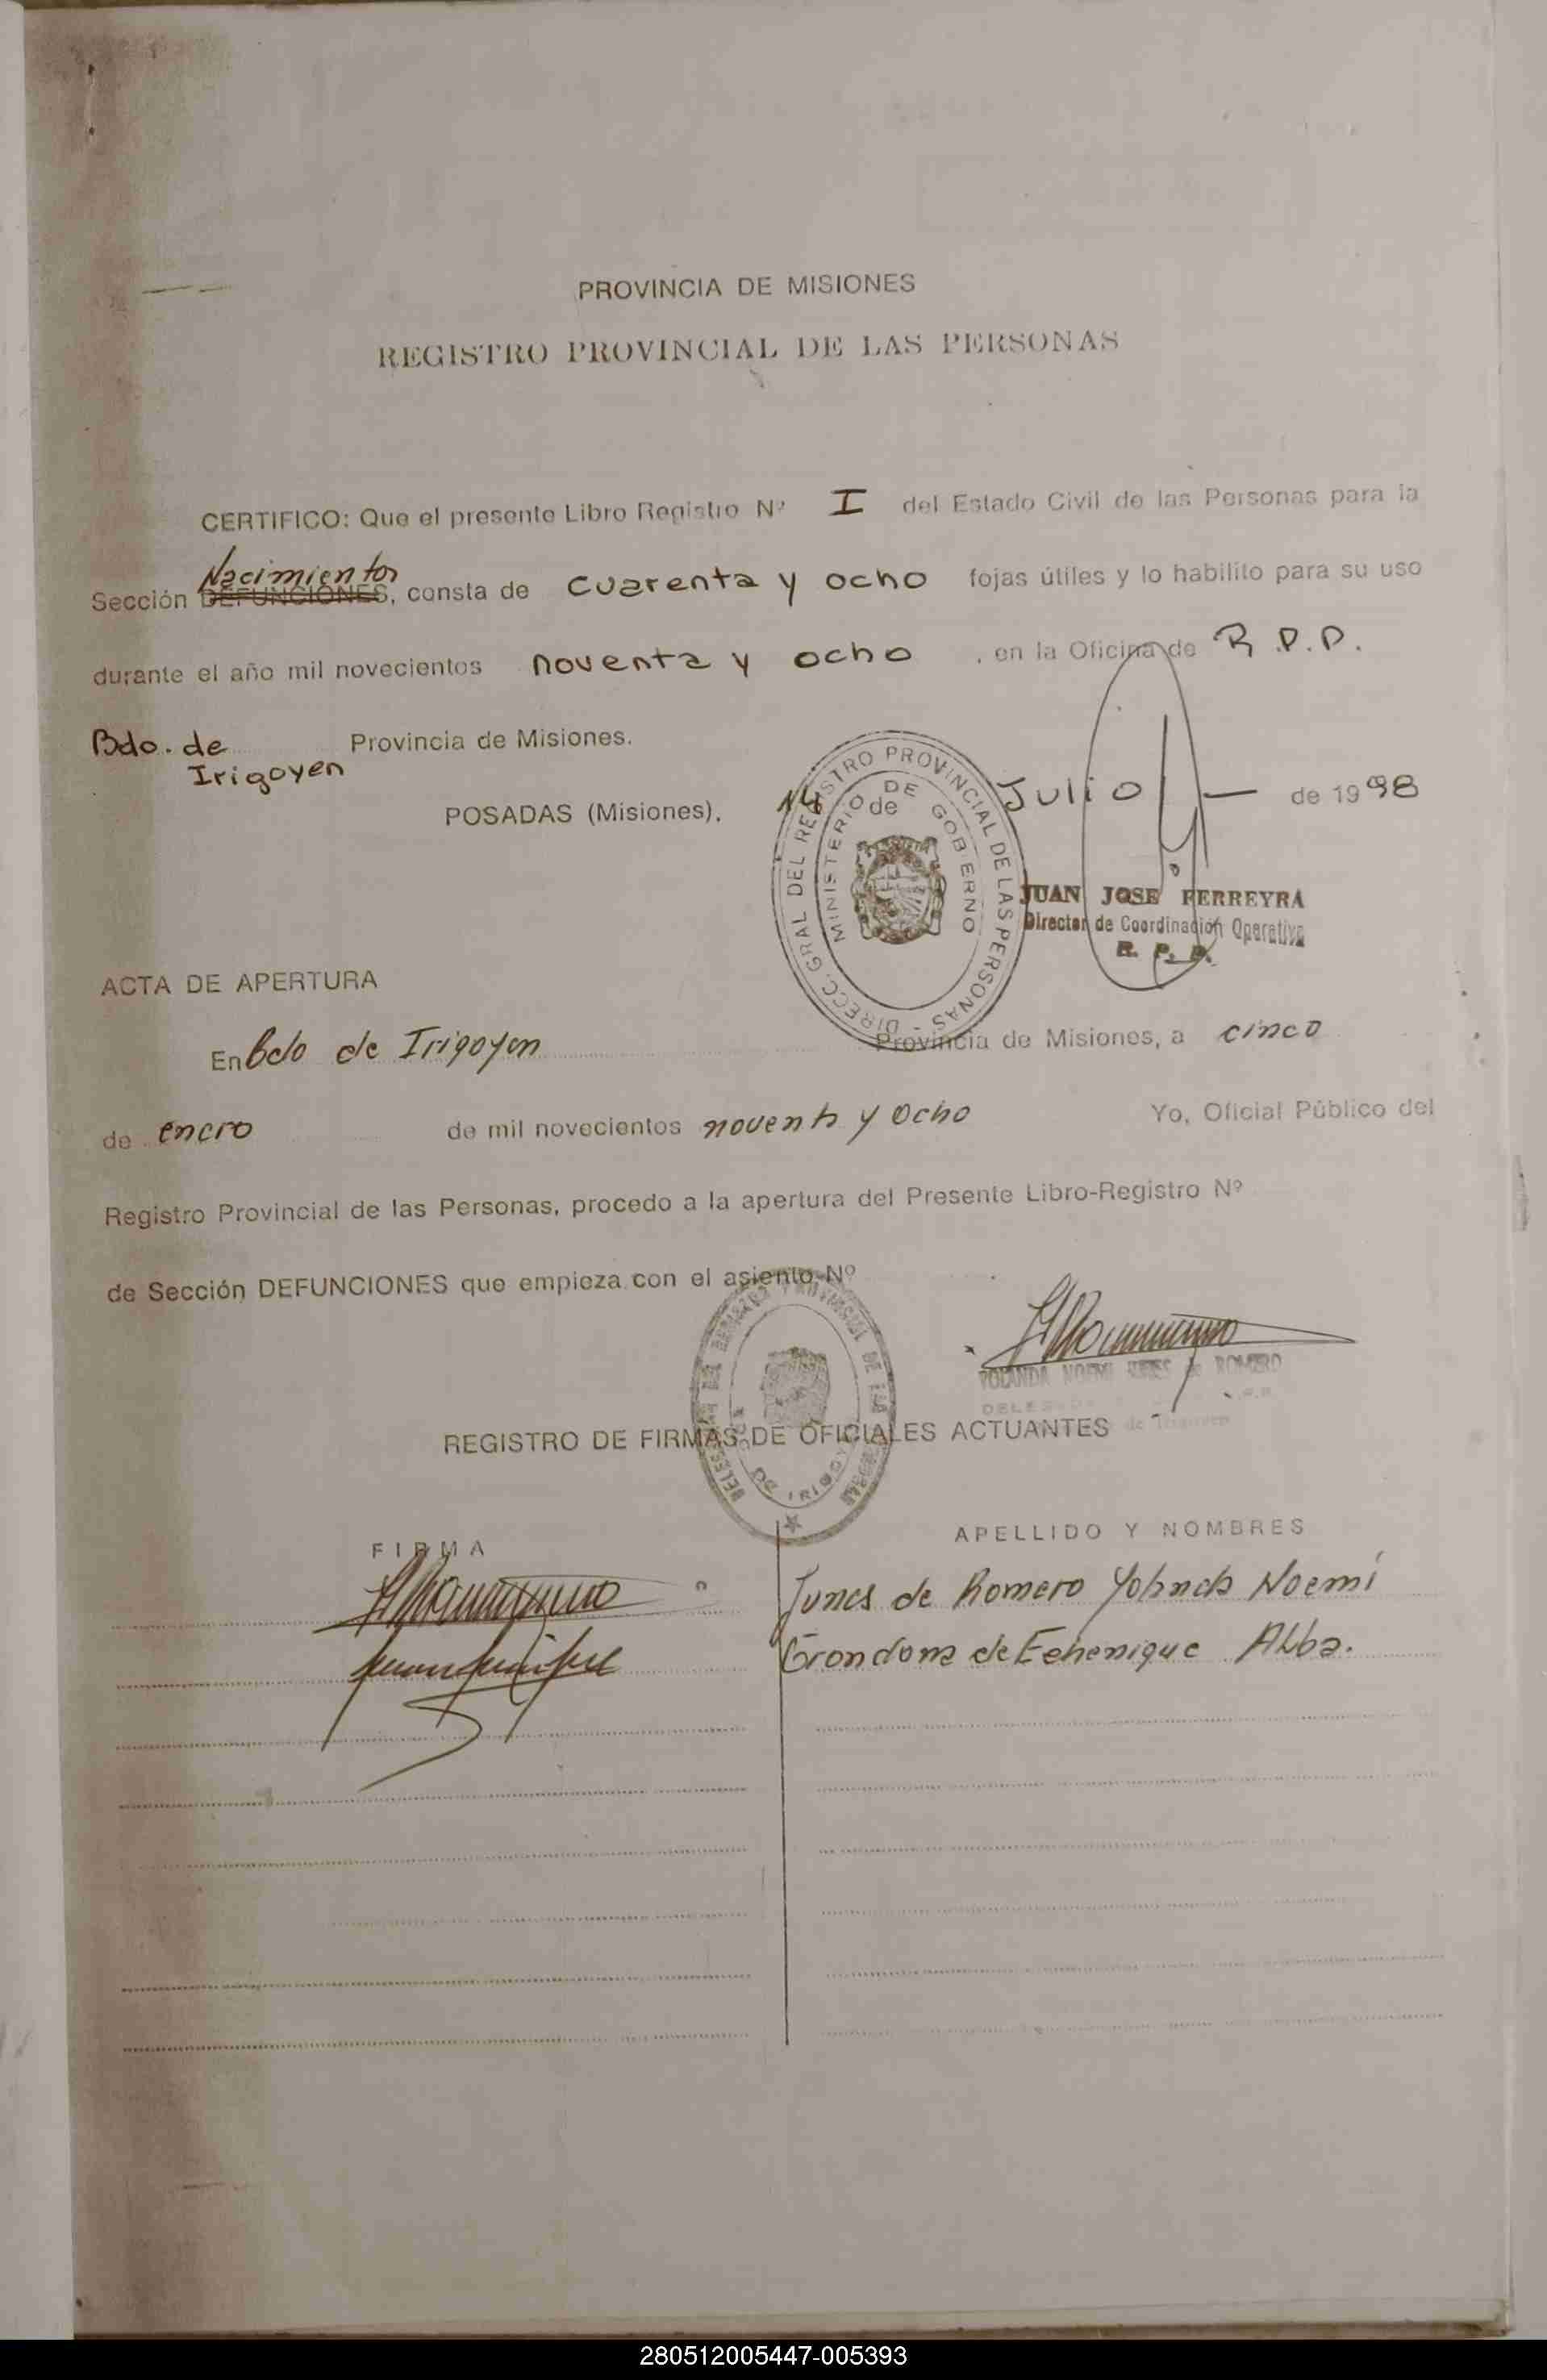 PROVINCIA DE MISIONES
REGISTRO PROVINCIAL DE LAS PERSONAS
CERTIFICO: Que el presente Libro Registro Nº I del Estado Civil de las Personas para la
Nacimientos
Sección DEFUNCIONES, consta de cuarenta y ocho fojas útiles y lo habilito para su uso
durante el año mil novecientos noventa y ocho, en la Oficina de R.P.P.
Bdo. de Provincia de Misiones.
Irigoyen
POSADAS (Misiones), 14 de Julio de 1998
DIRECC. GRAL DEL REGISTRO PROVINCIAL DE LAS PERSONAS -
MINISTERIO DE GOBIERNO
JUAN JOSE FERREYRA
Director de Coordinación Operativa
R. P. P.
ACTA DE APERTURA
En Bdo de Irigoyen Provincia de Misiones, a cinco
de enero de mil novecientos noventa y ocho Yo, Oficial Público del
Registro Provincial de las Personas, procedo a la apertura del Presente Libro-Registro Nº
de Sección DEFUNCIONES que empieza con el asiento Nº
REGISTRO PROVINCIAL DE LAS
DE IRIGOY
YOLANDA NOEMI de ROMERO
de Irigoyen
REGISTRO DE FIRMAS DE OFICIALES ACTUANTES
FIRMA APELLIDO Y NOMBRES
Junes de Romero Yolanda Noemí
Grondona de Echenique Alba.
280512005447-005393